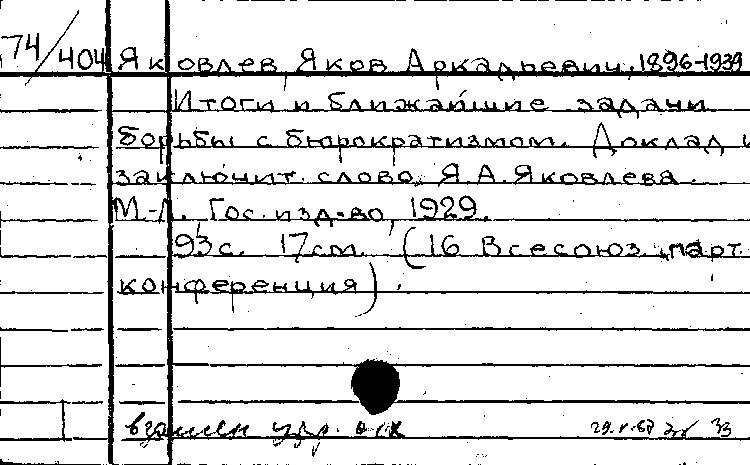 74/404 Яковлев, Яков Аркадьевич, 1896-1939
Итоги и ближайшие задачи
борьбы с бюрократизмом. Доклад и
заключит. слово Я.А. Яковлева.
М.-Л., Гос. изд-во, 1929.
93 с. 17 см. (16 Всесоюз. парт.
конференция).
взамен утр.